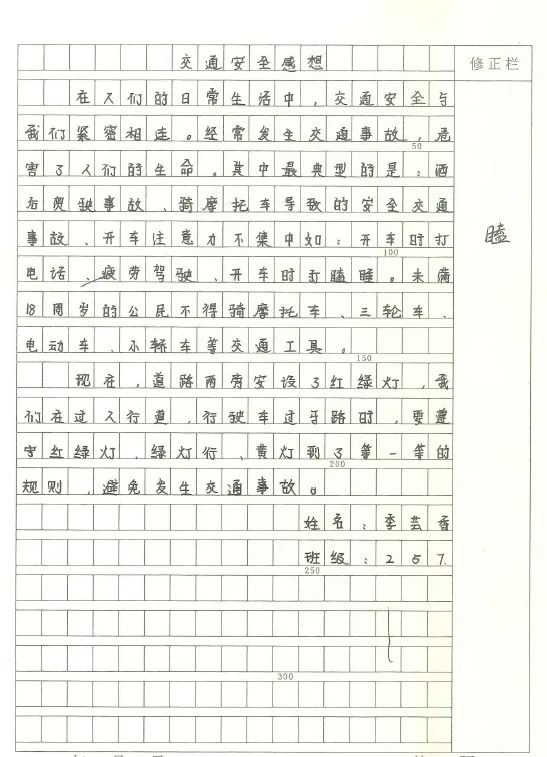 交通安全感想
修正栏
在人们的日常生活中，交通安全与
我们紧密相连。经常发生交通事故，危
50
害了人们的生命。其中最典型的是：酒
后贺驶事故、骑摩托车导致的安全交通
事故、开车注意力不集中如：开车时打
100
瞌
电话、疲劳驾驶、开车时打瞌睡。未满
18周岁的公民不得骑摩托车、三轮车、
电动车、小轿车等交通工具。
150
现在，道路两旁安设了红绿灯，我
们在过人行道，行驶车过马路时，要遵
守红绿灯，绿灯行、黄灯到了等一等的
200
规则，避免发生交通事故。
姓名：李芸香
班级：257.
250
300